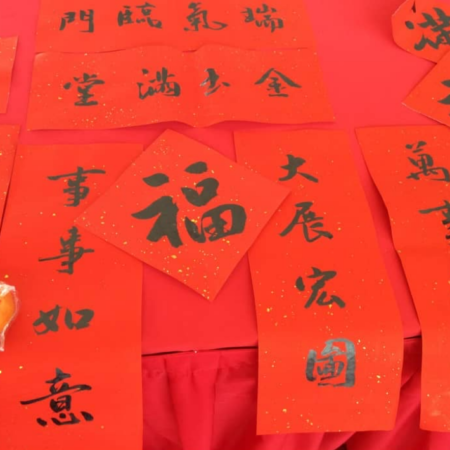 瑞氣臨門
金玉滿堂
滿
萬事
大展宏圖
福
事事如意